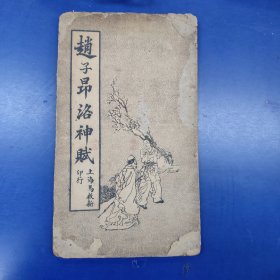 趙子昂洛神賦
上海馬啟新
印行